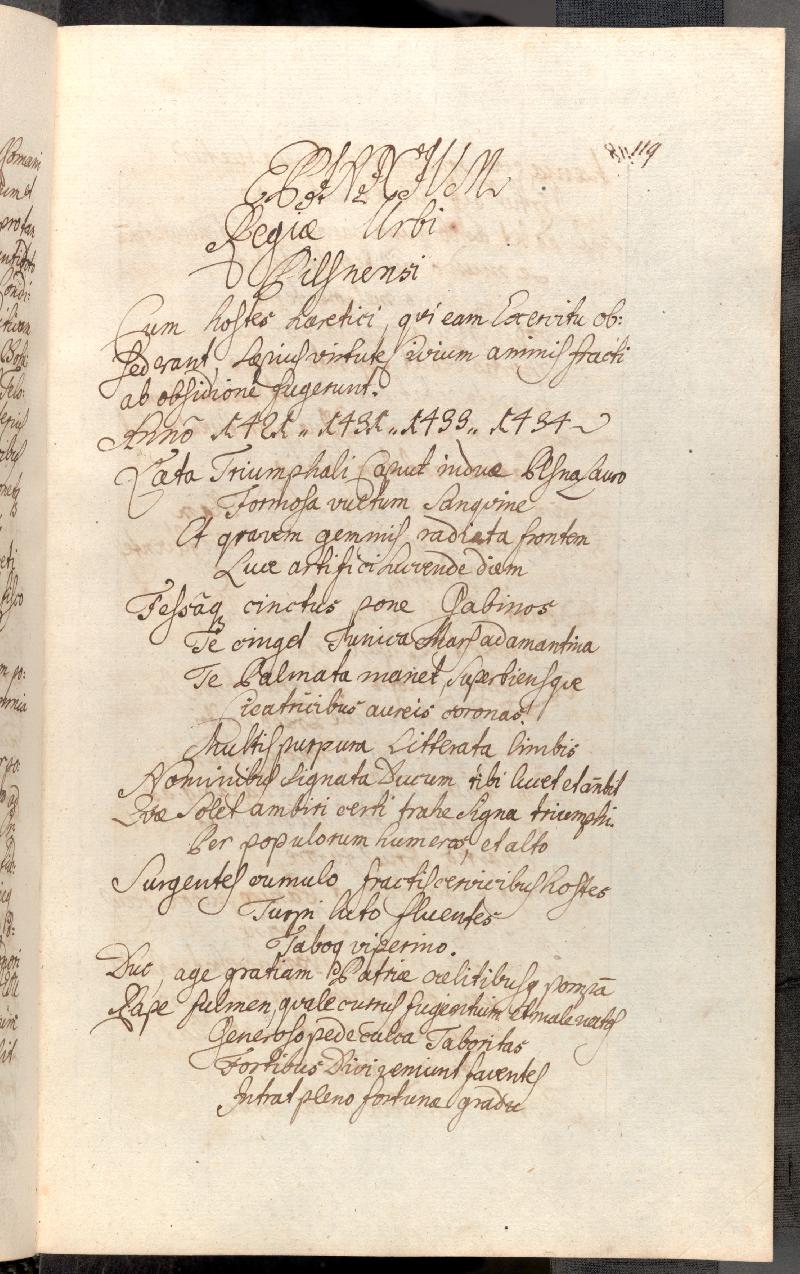 119
EPINICIUM
Regiæ Urbi
Pilsnensi
Cum hostes hæretici, qui eam Exercitu ob:
sederant, sæpius virtute civium animis fracti
ab obsidione fugerunt.
Anno 1421 „ 1431 „ 1433 „ 1434
Læta Triumphali Caput indue Plsna Lauro
Formosa vultum Sangvine
Et gravem gemmis radiata frontem
Luce artifici lucende diem
Fessāq cinctus pone Gabinos
Te cinget Tunica Mars adamantina
Te Palmata manet, superbiensque
Cicatricibus aureis coronas.
Multis purpura Litterata limbis
Nominibus signata Ducum tibi lucet et ambit
Quæ Solet ambiri certi trahe Signa triumphi.
Per populorum humeros, et alto
Surgentes cumulo fractis cervicibus hostes
Turpi luto fluentes
Taboq viperino.
Duc, age gratiam Patriæ cælitibusq pompā
Rape fulmen, quale currus fugientium et male natos
Generoso pede culca Taboritas
Fortibus Divi veniunt faventes
Intrat pleno fortunæ gradu